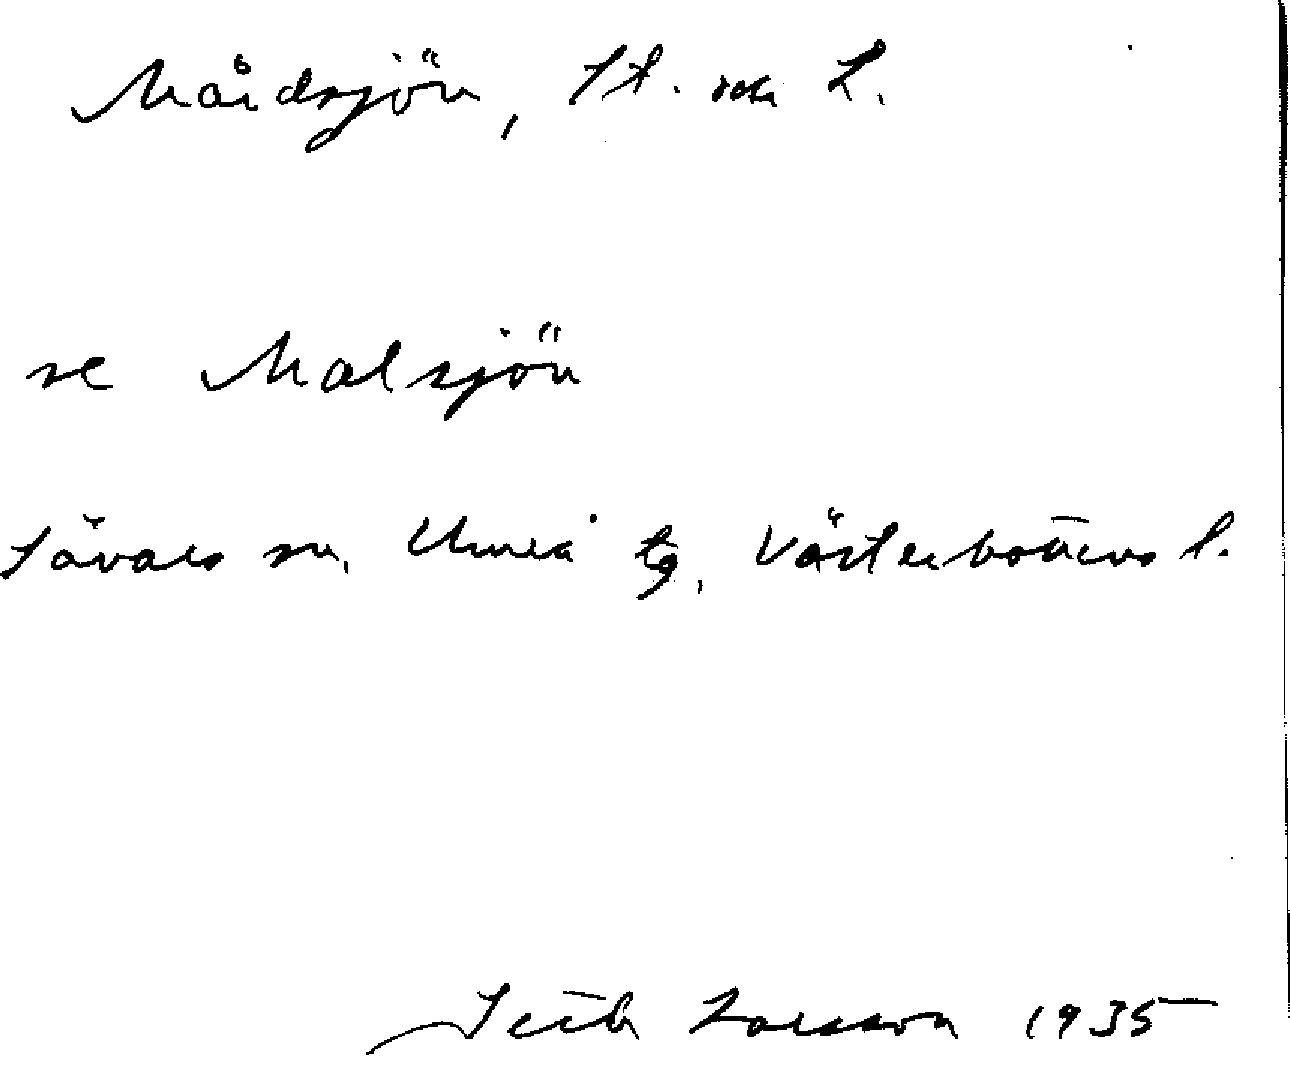 Mårdsjön, St. och L.
se Malsjön
Sävars sn, Umeå tg, Västerbottens l.
Seth Larsson 1935